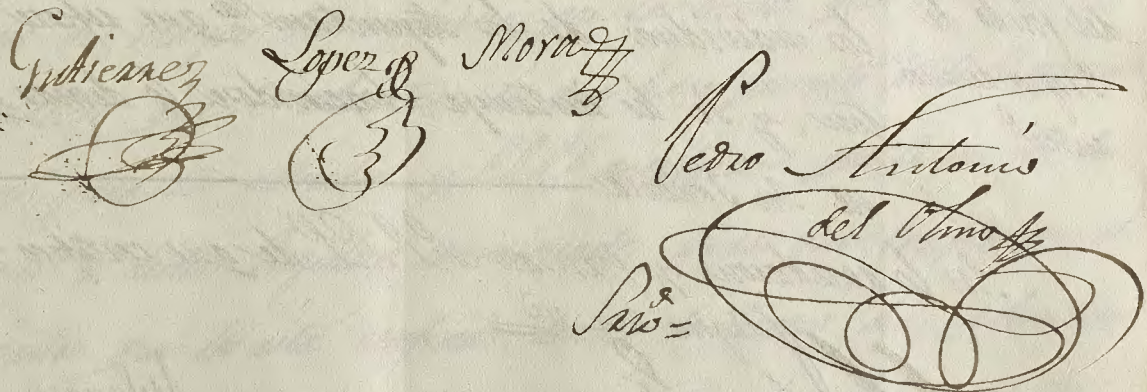 Gutierrez Lopez Mora
Pedro Antonio
del Olmo
Srio=